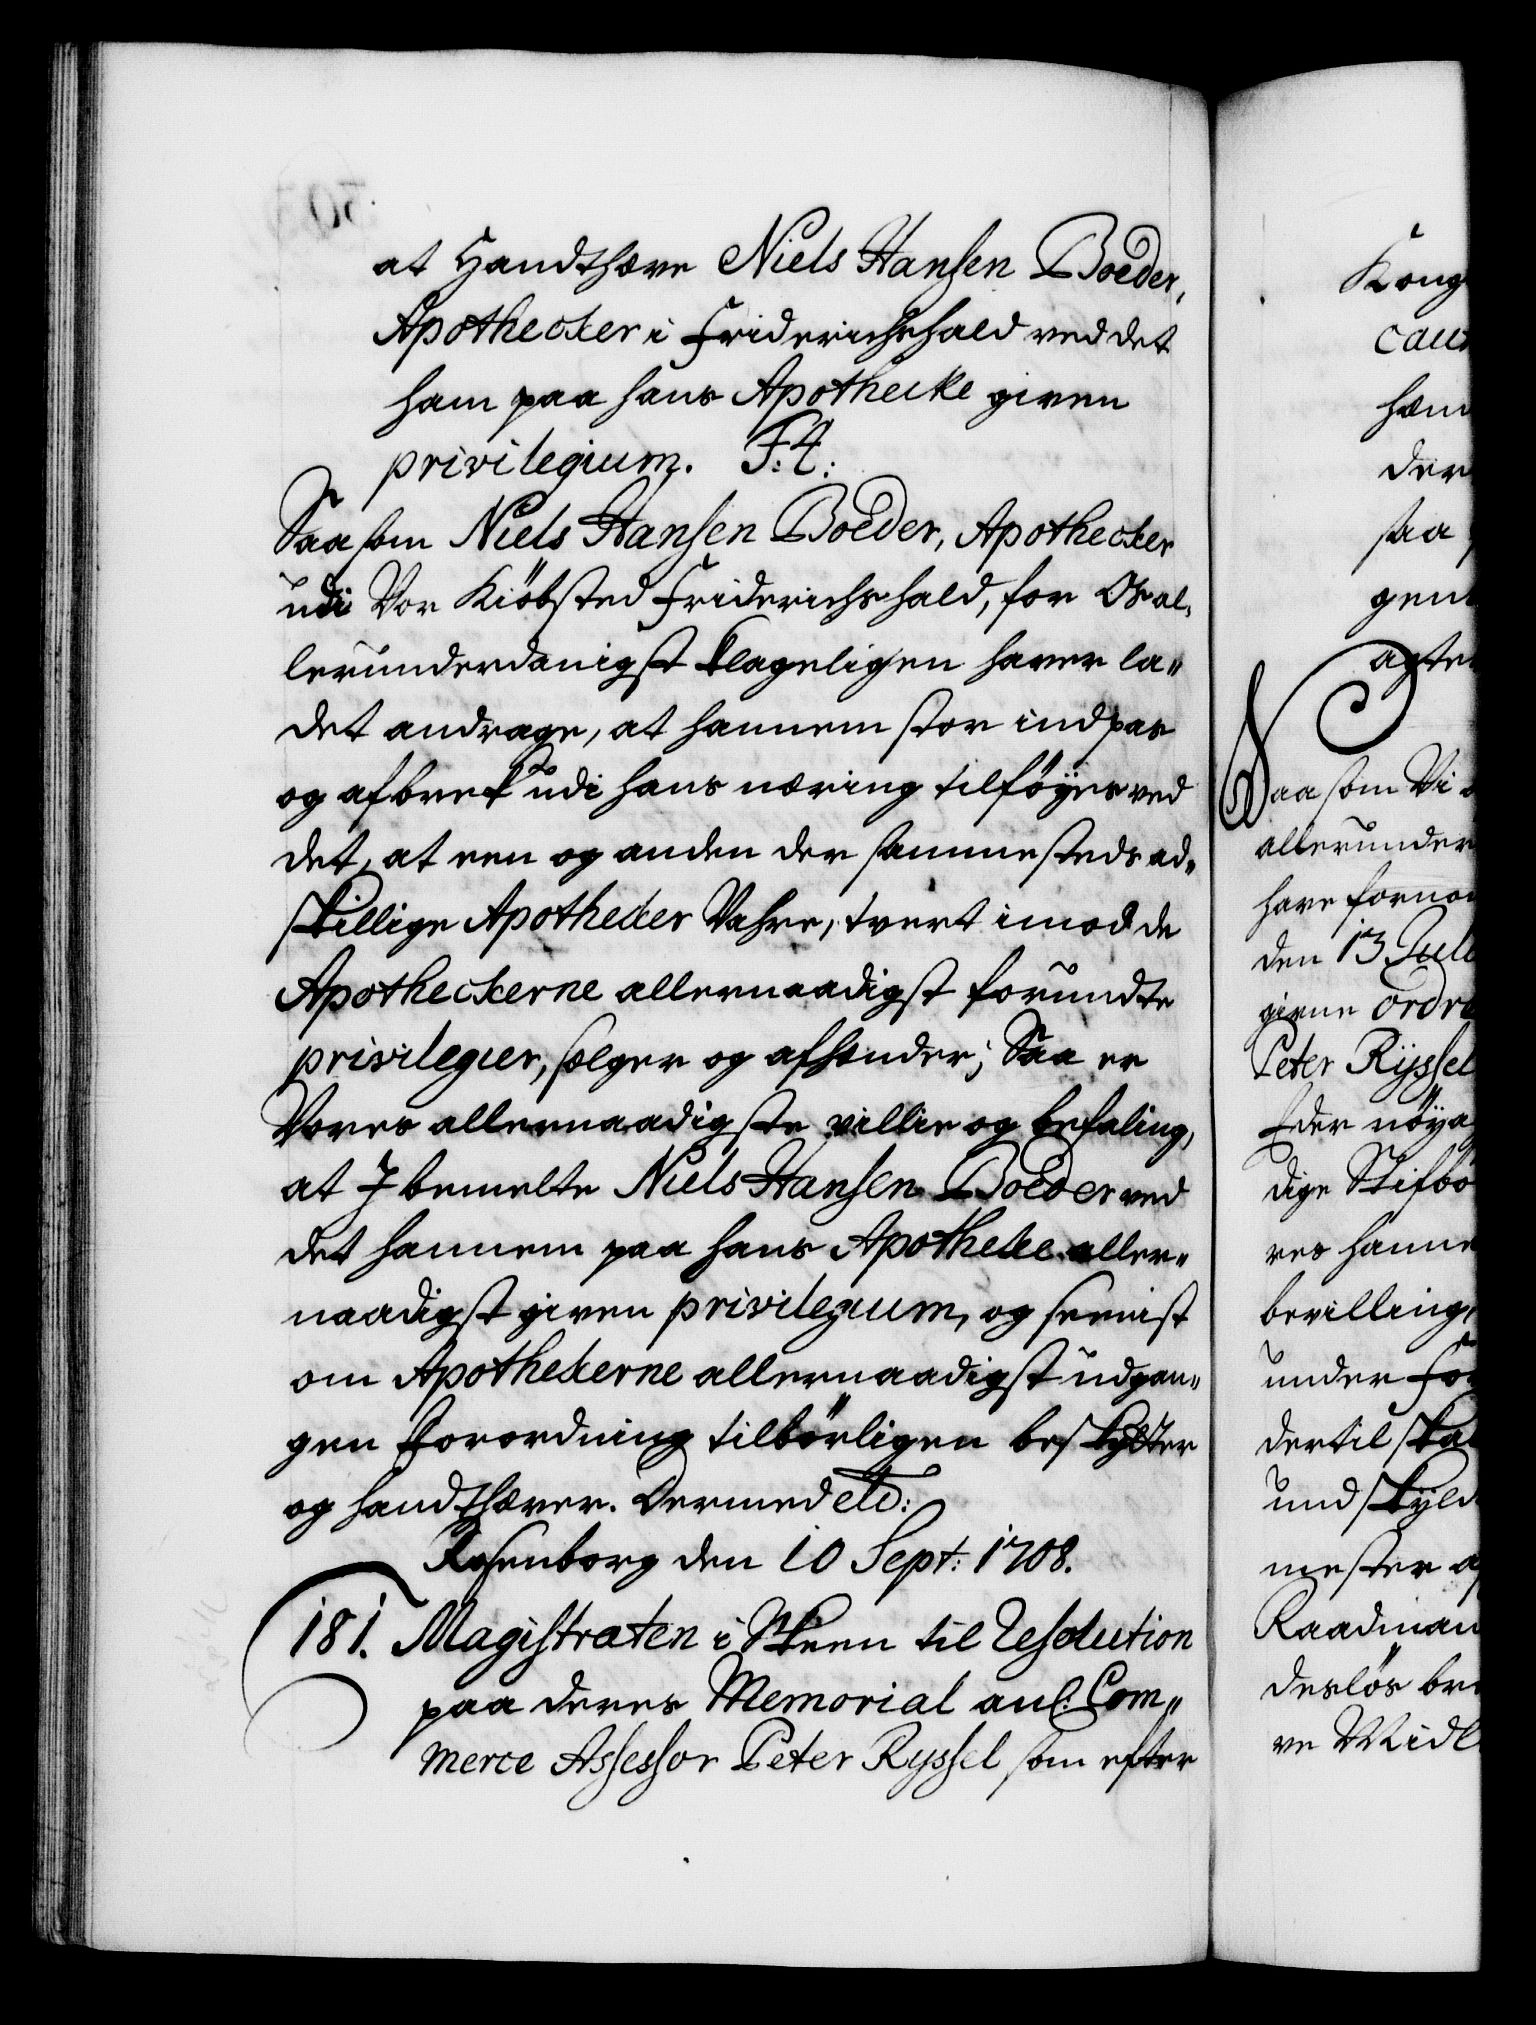 at Handthæve Niels Hansen Boeder,
Apothecker i Friderichshald ved det
ham paa hans Apothecke given
privilegium. F: 4:
Saasom Niels Hansen Boeder, Apothecker
udi Vor Kiöbsted Friderichshald, for Os al-
lerunderdanigst klageligen haver la-
det andrage, at hannem stor indpas
og afbrek udi hans næring tilföyes ved
det, at een og anden der sammesteds ad-
skillige Apothecker Vahre, tvert imod de
Apotheckerne allernaadigst forundte
privilegier, sælger og afhender; Saa er
Vores allernaadigste villie og befaling,
at I bemelte Niels Hansen Boeder ved
det hannem paa hans Apothecke aller-
naadigst given privilegium, og seenist
om Apotheckerne allernaadigst udgan-
gen forordning tilbörligen beskytter
og handthæver. Dermed etc:
Rosenborg den 10 Sept: 1708.
181. Magistraten i Skeen til Resolution
paa deres Memorial anl: Com-
merce Assessor Peter Ryssel som efter
Kong
caut
hæm
der
saa
gent
agter
Saasom Vi
allerunder
have fornom
den 13 Juli
givne ordre
Peter Ryssel
Eder nöya
dige Skifbo
res hanne
bevilling,
under for
dertil ska
und skyld
mester
Raadman
deslös bre
ve Midl